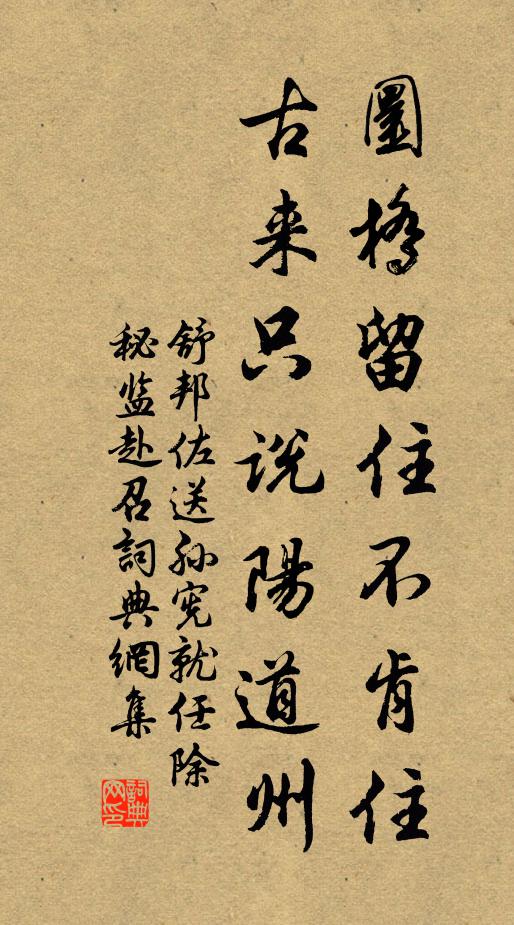 圜橋留住不肯住
古来只说陽道州
舒邦佐送孙宪就任除
秘监赴召詞典網集
詞典
网印